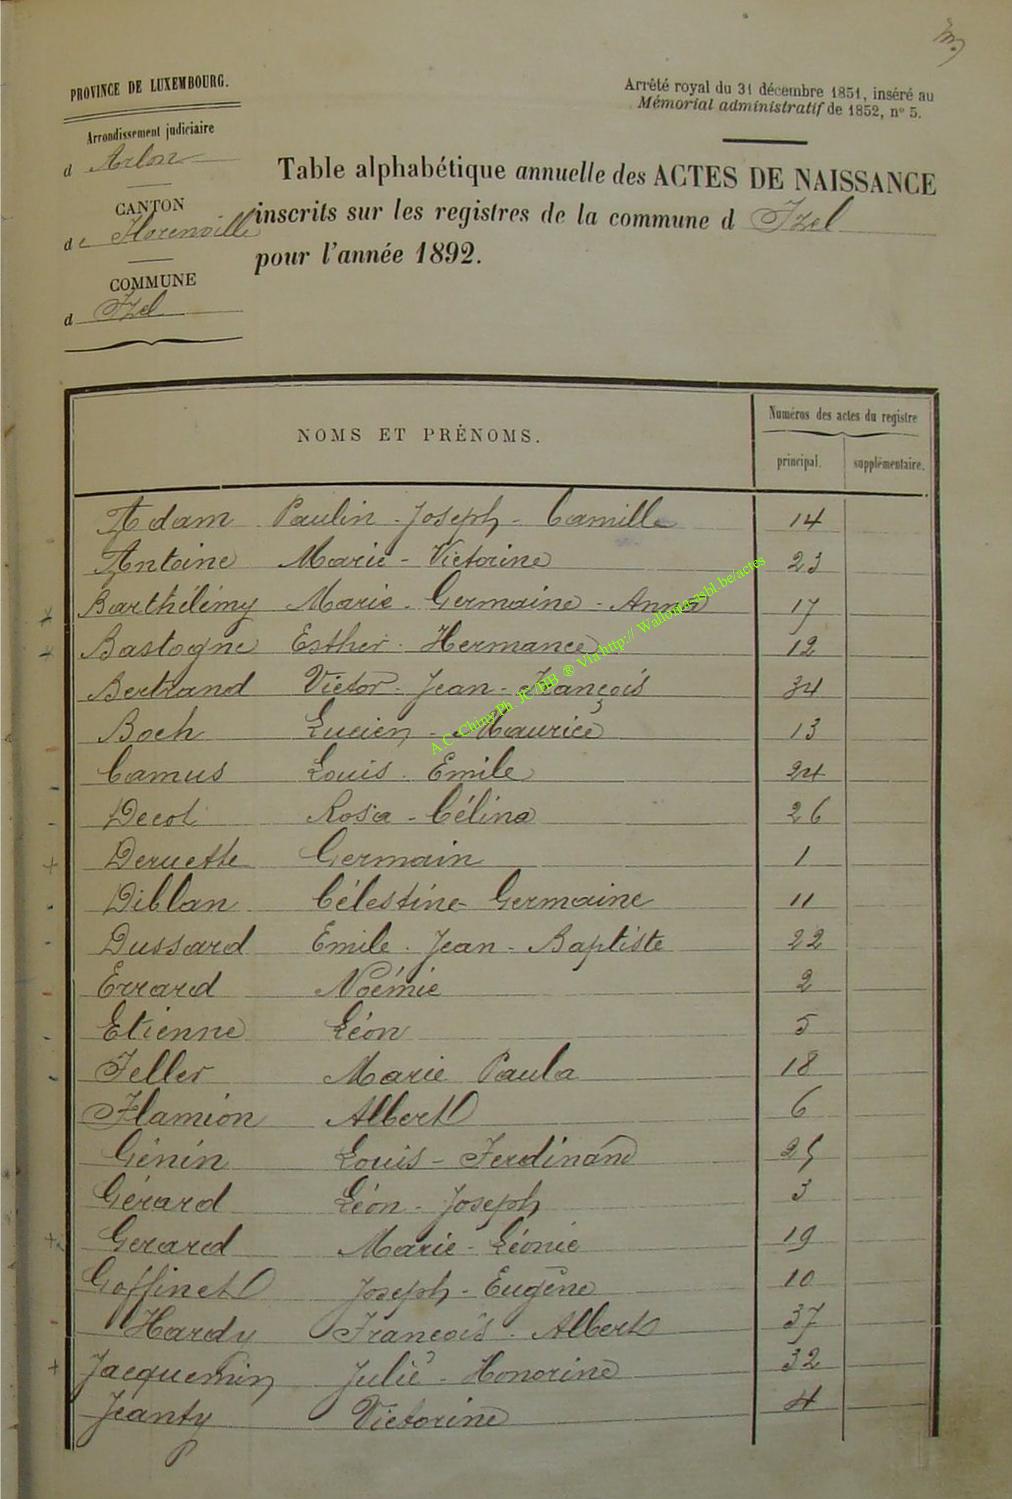 PROVINCE DE LUXEMBOURG.
Arrondissement judiciaire
d Arlon
CANTON
de Florenville
COMMUNE
d Izel
Arrêté royal du 31 décembre 1851, inséré au
Mémorial administratif de 1852, n° 5.
Table alphabétique annuelle des ACTES DE NAISSANCE
inscrits sur les registres de la commune d Izel
pour l'année 1892.
NOMS ET PRÉNOMS.
Numéros des actes du registre
principal. supplémentaire.
Adam Paulin - Joseph - Camille 14
Antoine Marie - Victorine 23
Barthélémy Marie - Germaine - Anna 17
Bastogne Esther - Hermance 12
Bertrand Victor - Jean - François 34
Boch Lucien - Maurice 13
Camus Louis - Emile 24
Decol Rosa - Célina 26
Deruette Germain 1
Diblan Célestine - Germaine 11
Dussard Emile - Jean - Baptiste 22
Errard Noémie 2
Etienne Léon 5
Feller Marie Paula 18
Flamion Albert 6
Génin Louis - Ferdinand 25
Gérard Léon - Joseph 3
Gerard Marie - Léonie 19
Goffinet Joseph - Eugène 10
Hardy François - Albert 37
Jacquemin Julie - Honorine 32
Jeanty Victorine 4
A.C. Chiny Ph JC/BB ® Via http:// Wallonia-asbl.be/actes